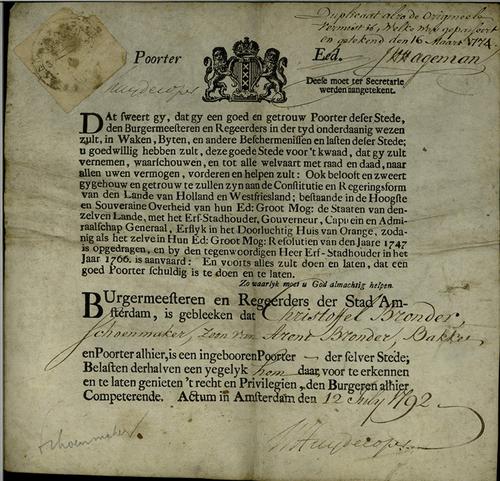 Duplicaat alzo de Origineele
Vermist is, Welke was gepasseert
en getekend den 16 Maart 1774.
Hageman
Poorter Eed.
Huydecoper
Deese moet ter Secretarie
werden aangetekent.
DAt sweert gy, dat gy een goed en getrouw Poorter deser Stede,
den Burgermeesteren en Regeerders in der tyd onderdaanig wezen
zult, in Waken, Byten, en andere Beschermenissen en lasten deser Stede;
u goedwillig hebben zult, deze goede Stede voor 't kwaad, dat gy zult
vernemen, waarschouwen, en tot alle welvaart met raad en daad, naar
allen uwen vermogen, vorderen en helpen zult: Ook belooft en zweert
gy gehouw en getrouw te zullen zyn aan de Constitutie en Regeringsform
van den Lande van Holland en Westfriesland; bestaande in de Hoogste
en Souveraine Overheid van hun Ed: Groot Mog: de Staaten van den-
zelven Lande, met het Erf-Stadhouder, Gouverneur, Capitein en Admi-
raalschap Generaal, Erflyk in het Doorluchtig Huis van Orange, zoda-
nig als het zelve in Hun Ed: Groot Mog: Resolutien van den Jaare 1747
is opgedragen, en by den tegenwoordigen Heer Erf-Stadhouder in het
Jaar 1766. is aanvaard: En voorts alles zult doen en laten, dat een
goed Poorter schuldig is te doen en te laten.
Zo waarlyk moet u God almachtig helpen.
BUrgermeesteren en Regeerders der Stad Am-
sterdam, is gebleeken dat Christoffel Bronder,
Schoenmaker, Zoon van Arent Bronder, Bakker
en Poorter alhier, is een ingebooren Poorter der selver Stede;
Belasten derhalven een yegelyk hem daar voor te erkennen
en te laten genieten 't recht en Privilegien, den Burgeren alhier
Competerende. Actum in Amsterdam den 12 July 1792
schoenmaker
Huydecoper